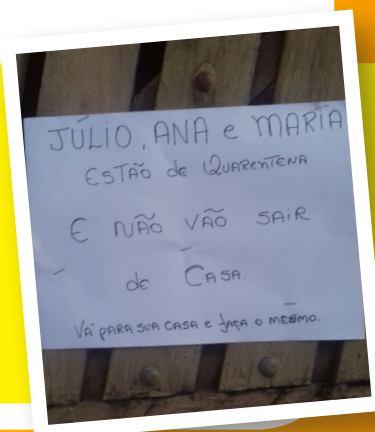 JÚLIO, ANA e MARIA
ESTÃO de QUARENTENA
E NÃO VÃO SAIR
de CASA.
VÁ PARA SUA CASA E FAÇA O MESMO.